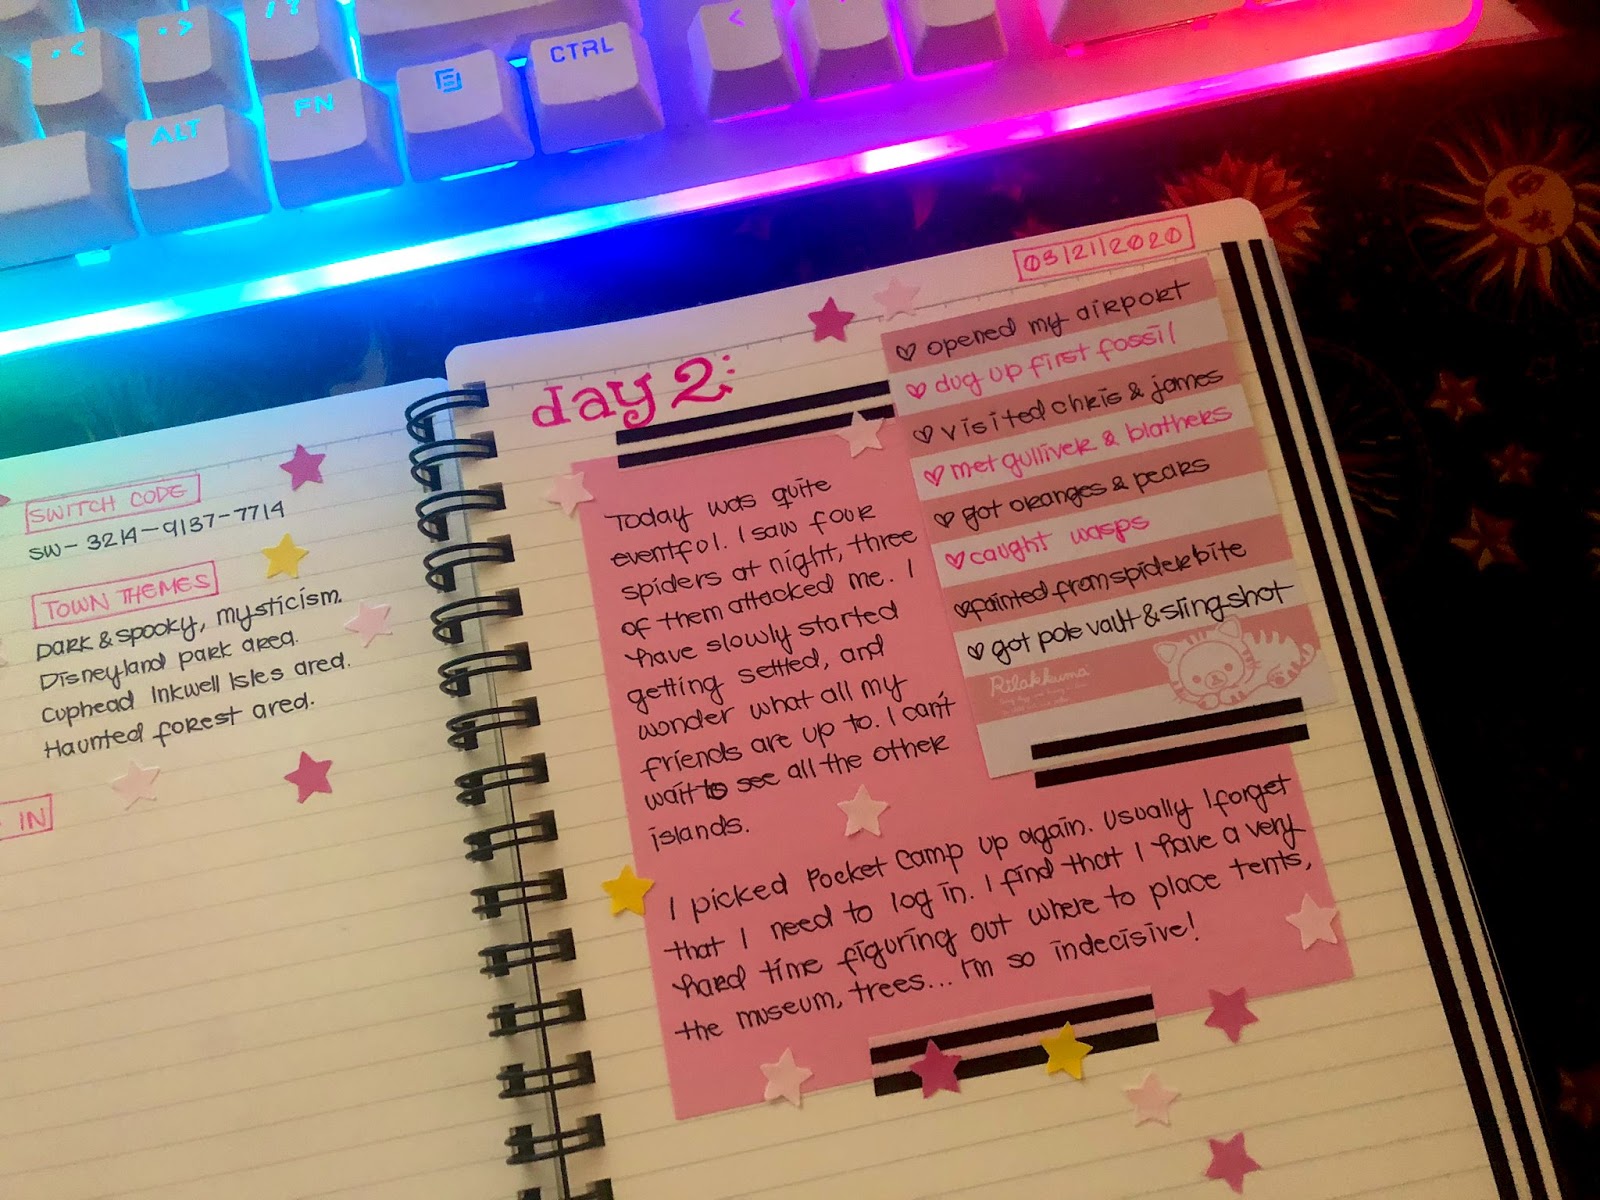 ALT
FN
CTRL
SWITCH CODE
SW-3214-9137-7714
TOWN THEMES
Dark & spooky, mysticism.
Disneyland park area.
Cuphead Inkwell Isles area.
Haunted forest area.
IN
day 2:
03/21/2020
♡ opened my airport
♡ dug up first fossil
♡ visited chris & james
♡ met gulliver & blathers
♡ got oranges & pears
♡ caught wasps
♡ fainted from spider bite
♡ got pole vault & slingshot
Rilakkuma
Today was quite
eventful. I saw four
spiders at night, three
of them attacked me. I
have slowly started
getting settled, and
wonder what all my
friends are up to. I can't
wait to see all the other
islands.
I picked Pocket Camp up again. Usually I forget
that I need to log in. I find that I have a very
hard time figuring out where to place tents,
the museum, trees... I'm so indecisive!